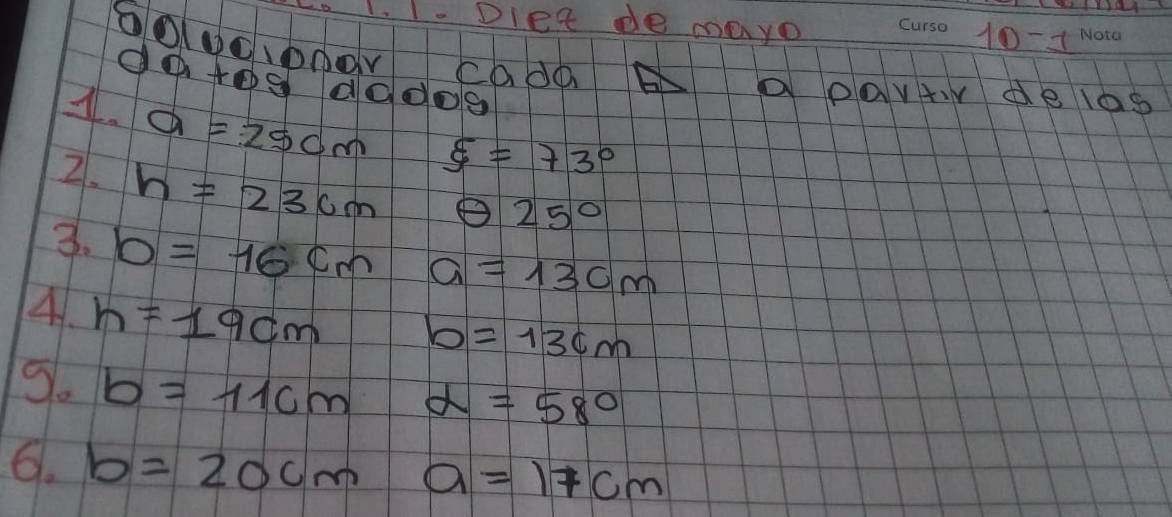 1.1- Diez de mayo Curso 10-1 Nota
Solucionar cada a partir de los
datos dados
1. a = 25cm = 73°
2. h = 23cm θ 25°
3. b = 16 cm a = 13cm
4. h = 19cm b = 13cm
5. b = 11cm α = 58°
6. b = 20cm a = 17cm